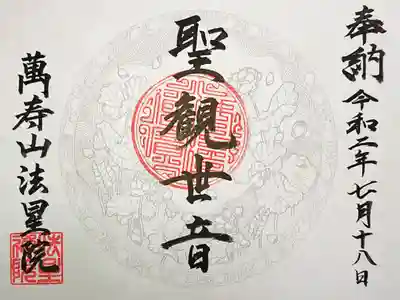 奉納 令和二年七月十八日
聖観世音
萬寿山法星院